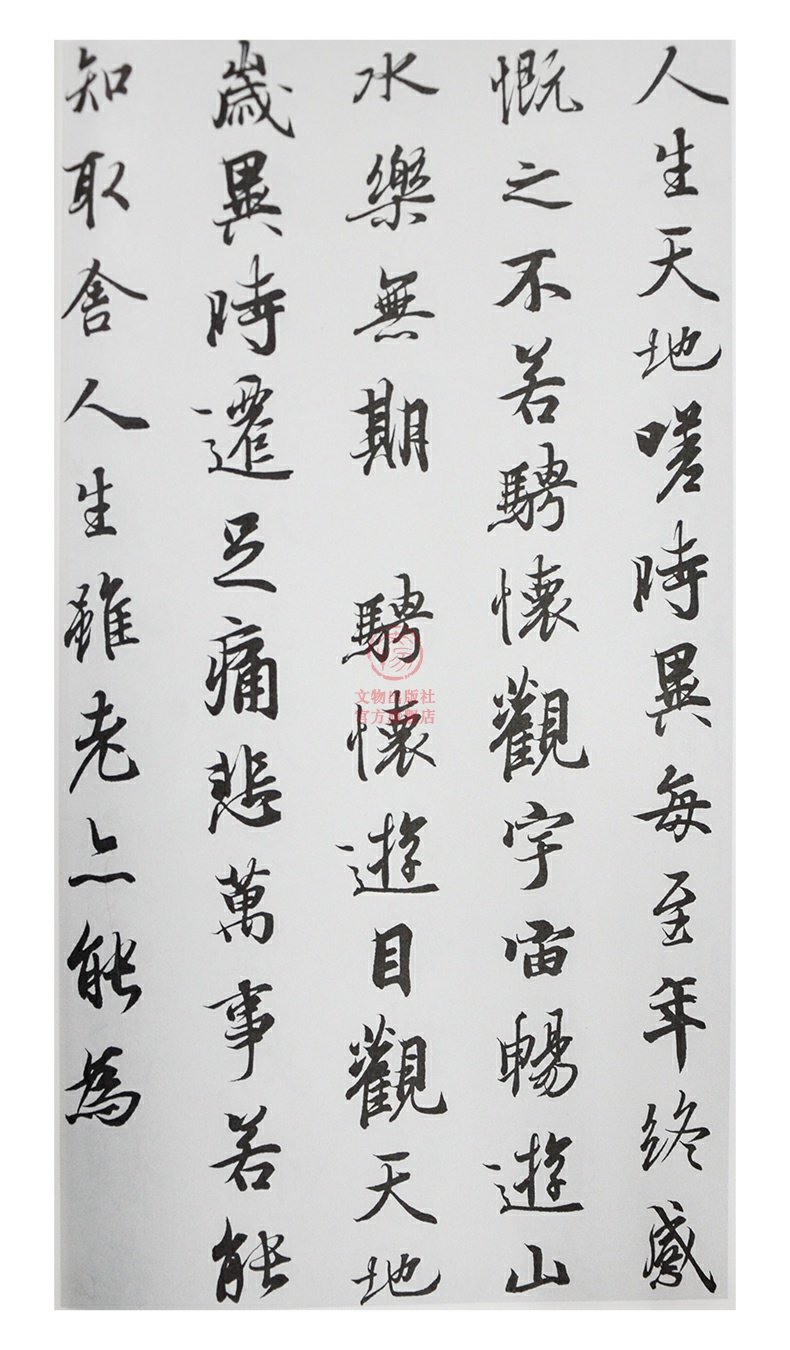 人生天地嗟時異每至年終感
慨之不若騁懷觀宇宙暢遊山
水樂無期 騁懷遊目觀天地
歲異時遷足痛悲萬事若能
知取舍人生雖老亦能為
文物出版社
官方旗舰店